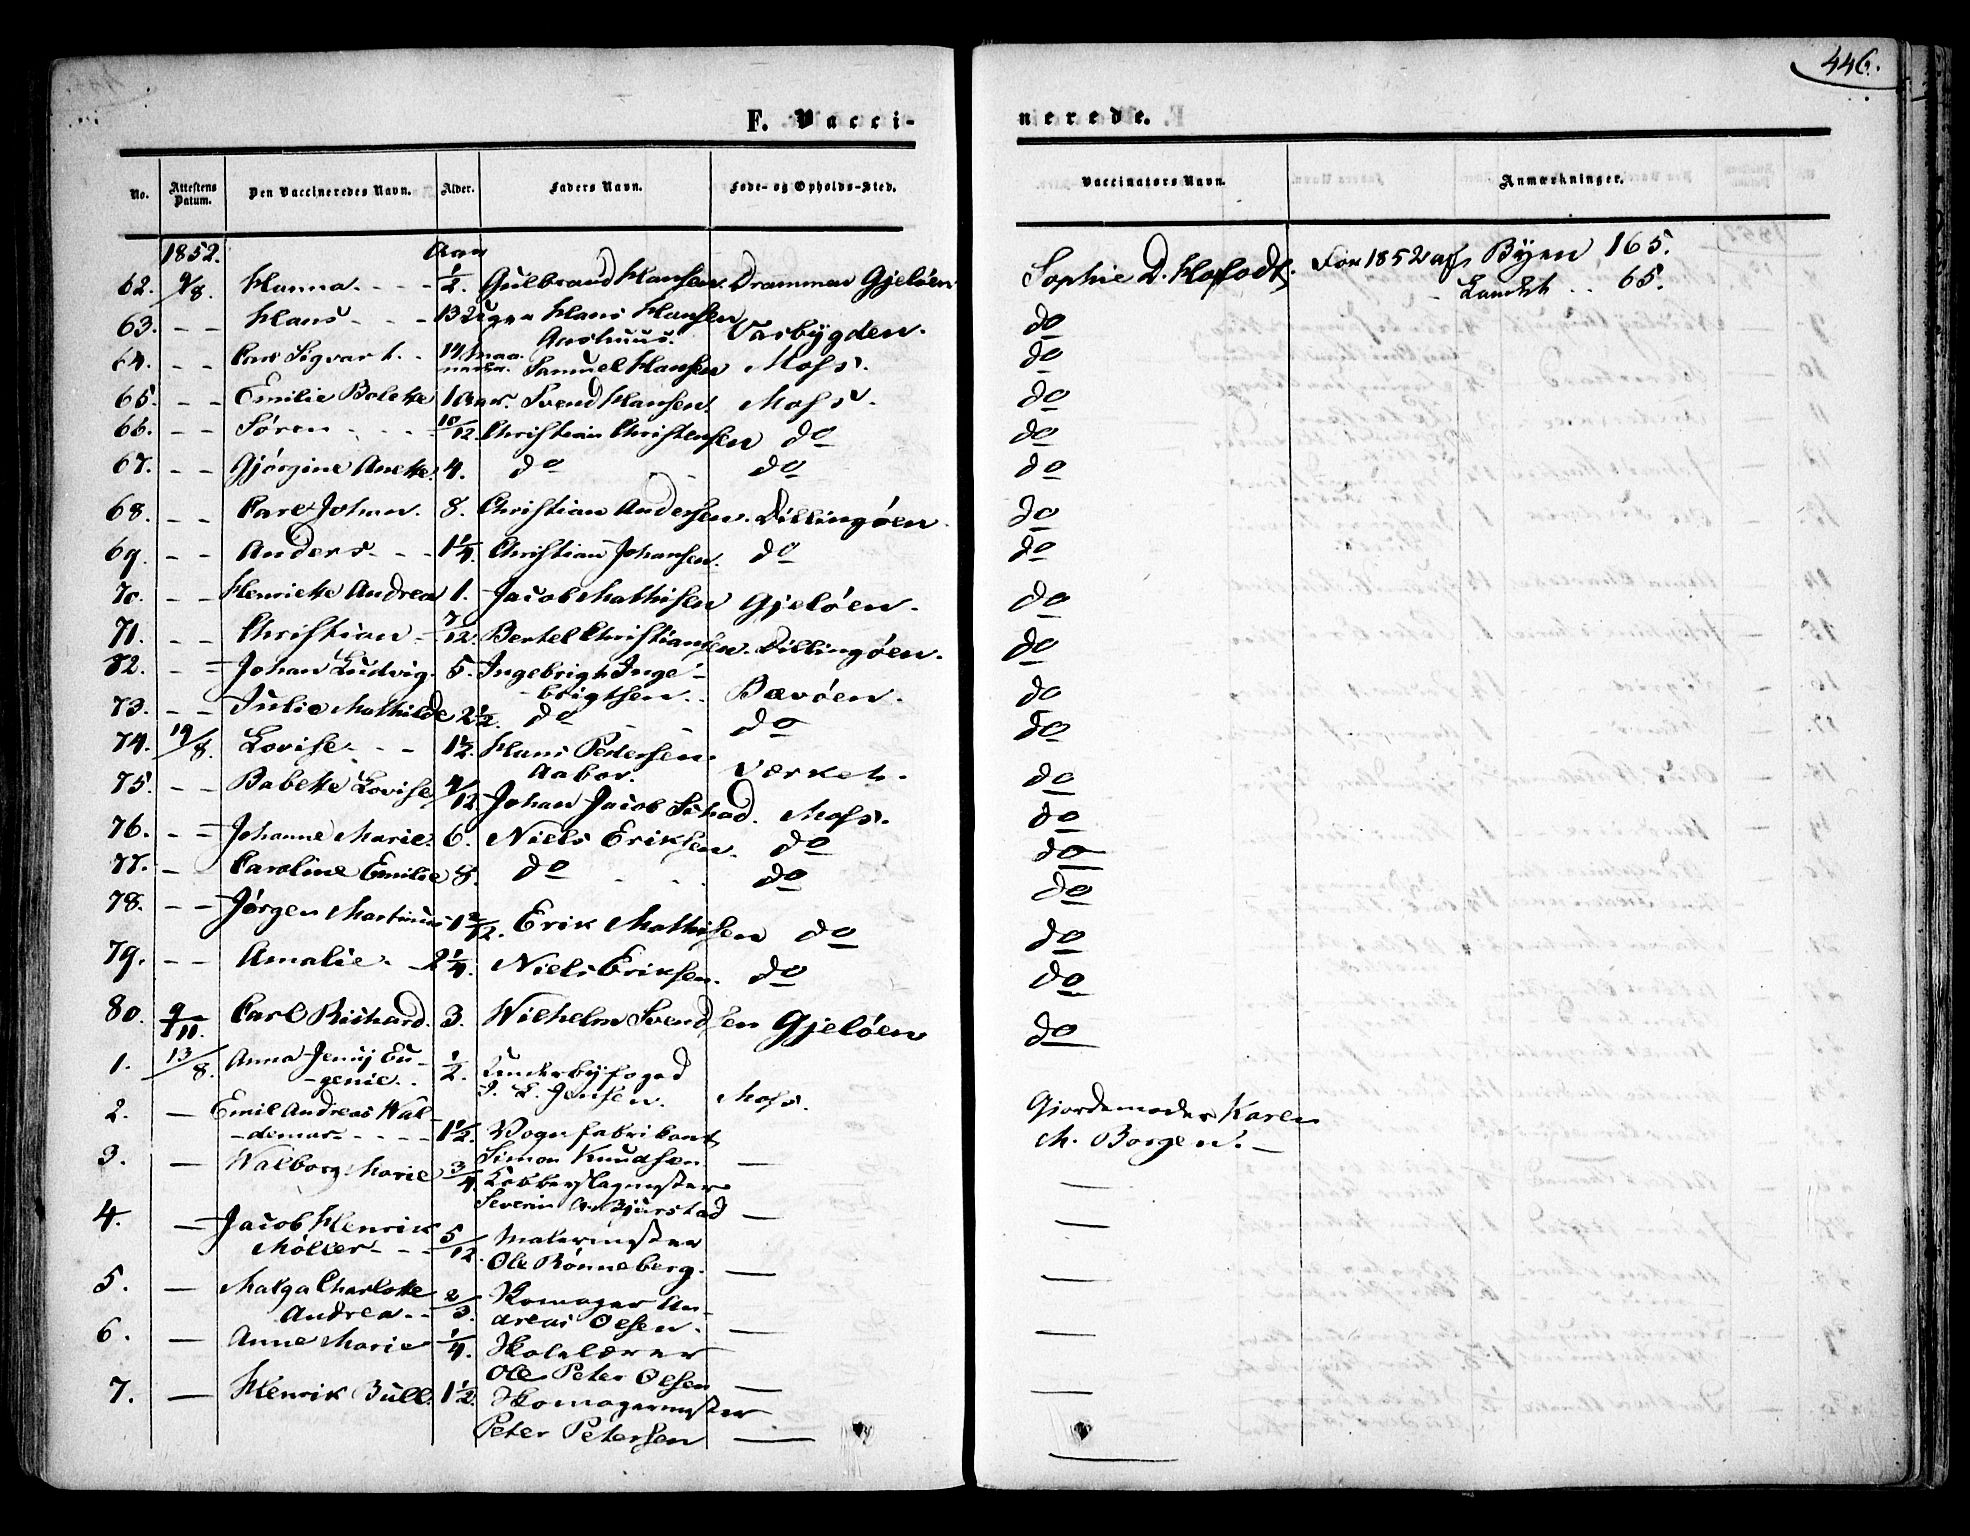 446.
F. Vacci-
nerede.
No. Attestens Datum. Den Vaccineredes Navn. Alder. Faders Navn. Føde- og Opholds-Sted. Vaccinators Navn. Anmærkninger.
1852. Aar
62. 9/8. Hanna. - - - 1/2. Gulbrand Hansen. Drammen Gjelöen Sophie D. For 1852 af Byen 165.
- Landet - - 65.
63. - - Hans - - - 13 Uger Hans Hansen
Aarhuus. Varbygden. do
64. - - Carl Sigvart. - 14 maa-
neder. Samuel Hansen Moss. do
65. - - Emilie Bolette 1 Aar. Svend Hansen. Moss. do
66. - - Sören - - - 10/12. Christian Christensen do do
67. - - Gjörgine Anette. 4. do - do do
68. - - Carl Johan. 8. Christian Andersen. Dillingöen. do
69. - - Anders - - - 1 1/4. Christian Johansen. do do
70. - - Henriette Andrea 1. Jacob Mathisen Gjelöen. do
71. - - Christian - 7/12. Bertel Christiansen. Dillingöen. do
72. - - Johan Ludvig. 5. Ingebrigt Inge-
brigtsen. - Bævöen. do
73. - - Julie Mathilde 2 1/2. do - - do do
74. 19/8. Lovise - - - 1 1/2. Hans Pedersen.
Aabor. Værket. do
75. - - Babette Lovise 4/12. Johan Jacob Schad. Moss. do
76. - - Johanne Marie. 6. Niels Eriksen. do do
77. - Caroline Emilie 8. do - - do do
78. - - Jörgen Martinus 1 2/12. Erik Mathisen do do
79. - - Amalie. - 2 1/4. Niels Eriksen. do do
80. 9/11. Carl Richard. 3. Wilhelm Svendsen Gjelöen do
1. 13/8. Anna Jenny Eu-
-genie. - 1/2. Underbyfoged
J. L. Jensen. Moss. Gjordemoder Karen
2. - Emil Andreas Wal-
-demar - - - 1 1/2. Vognfabrikant
Simon Knudsen - M. Borgen. -
3. - Walborg Marie 3/4. Kobberslagmester
Severin Bjurstad - -
4. - Jacob Henrik
Möller - - 5/12. Malermester
Ole Rönneberg. - -
5. - Malga Charlotte
Andrea - - 2/3. Skomager An-
dreas Olsen. - -
6. - Anne Marie 1/4. Skolelærer
Ole Peter Olsen - -
7. - Henrik Bull. 1 1/2. Skomagermester
Peter Petersen - -